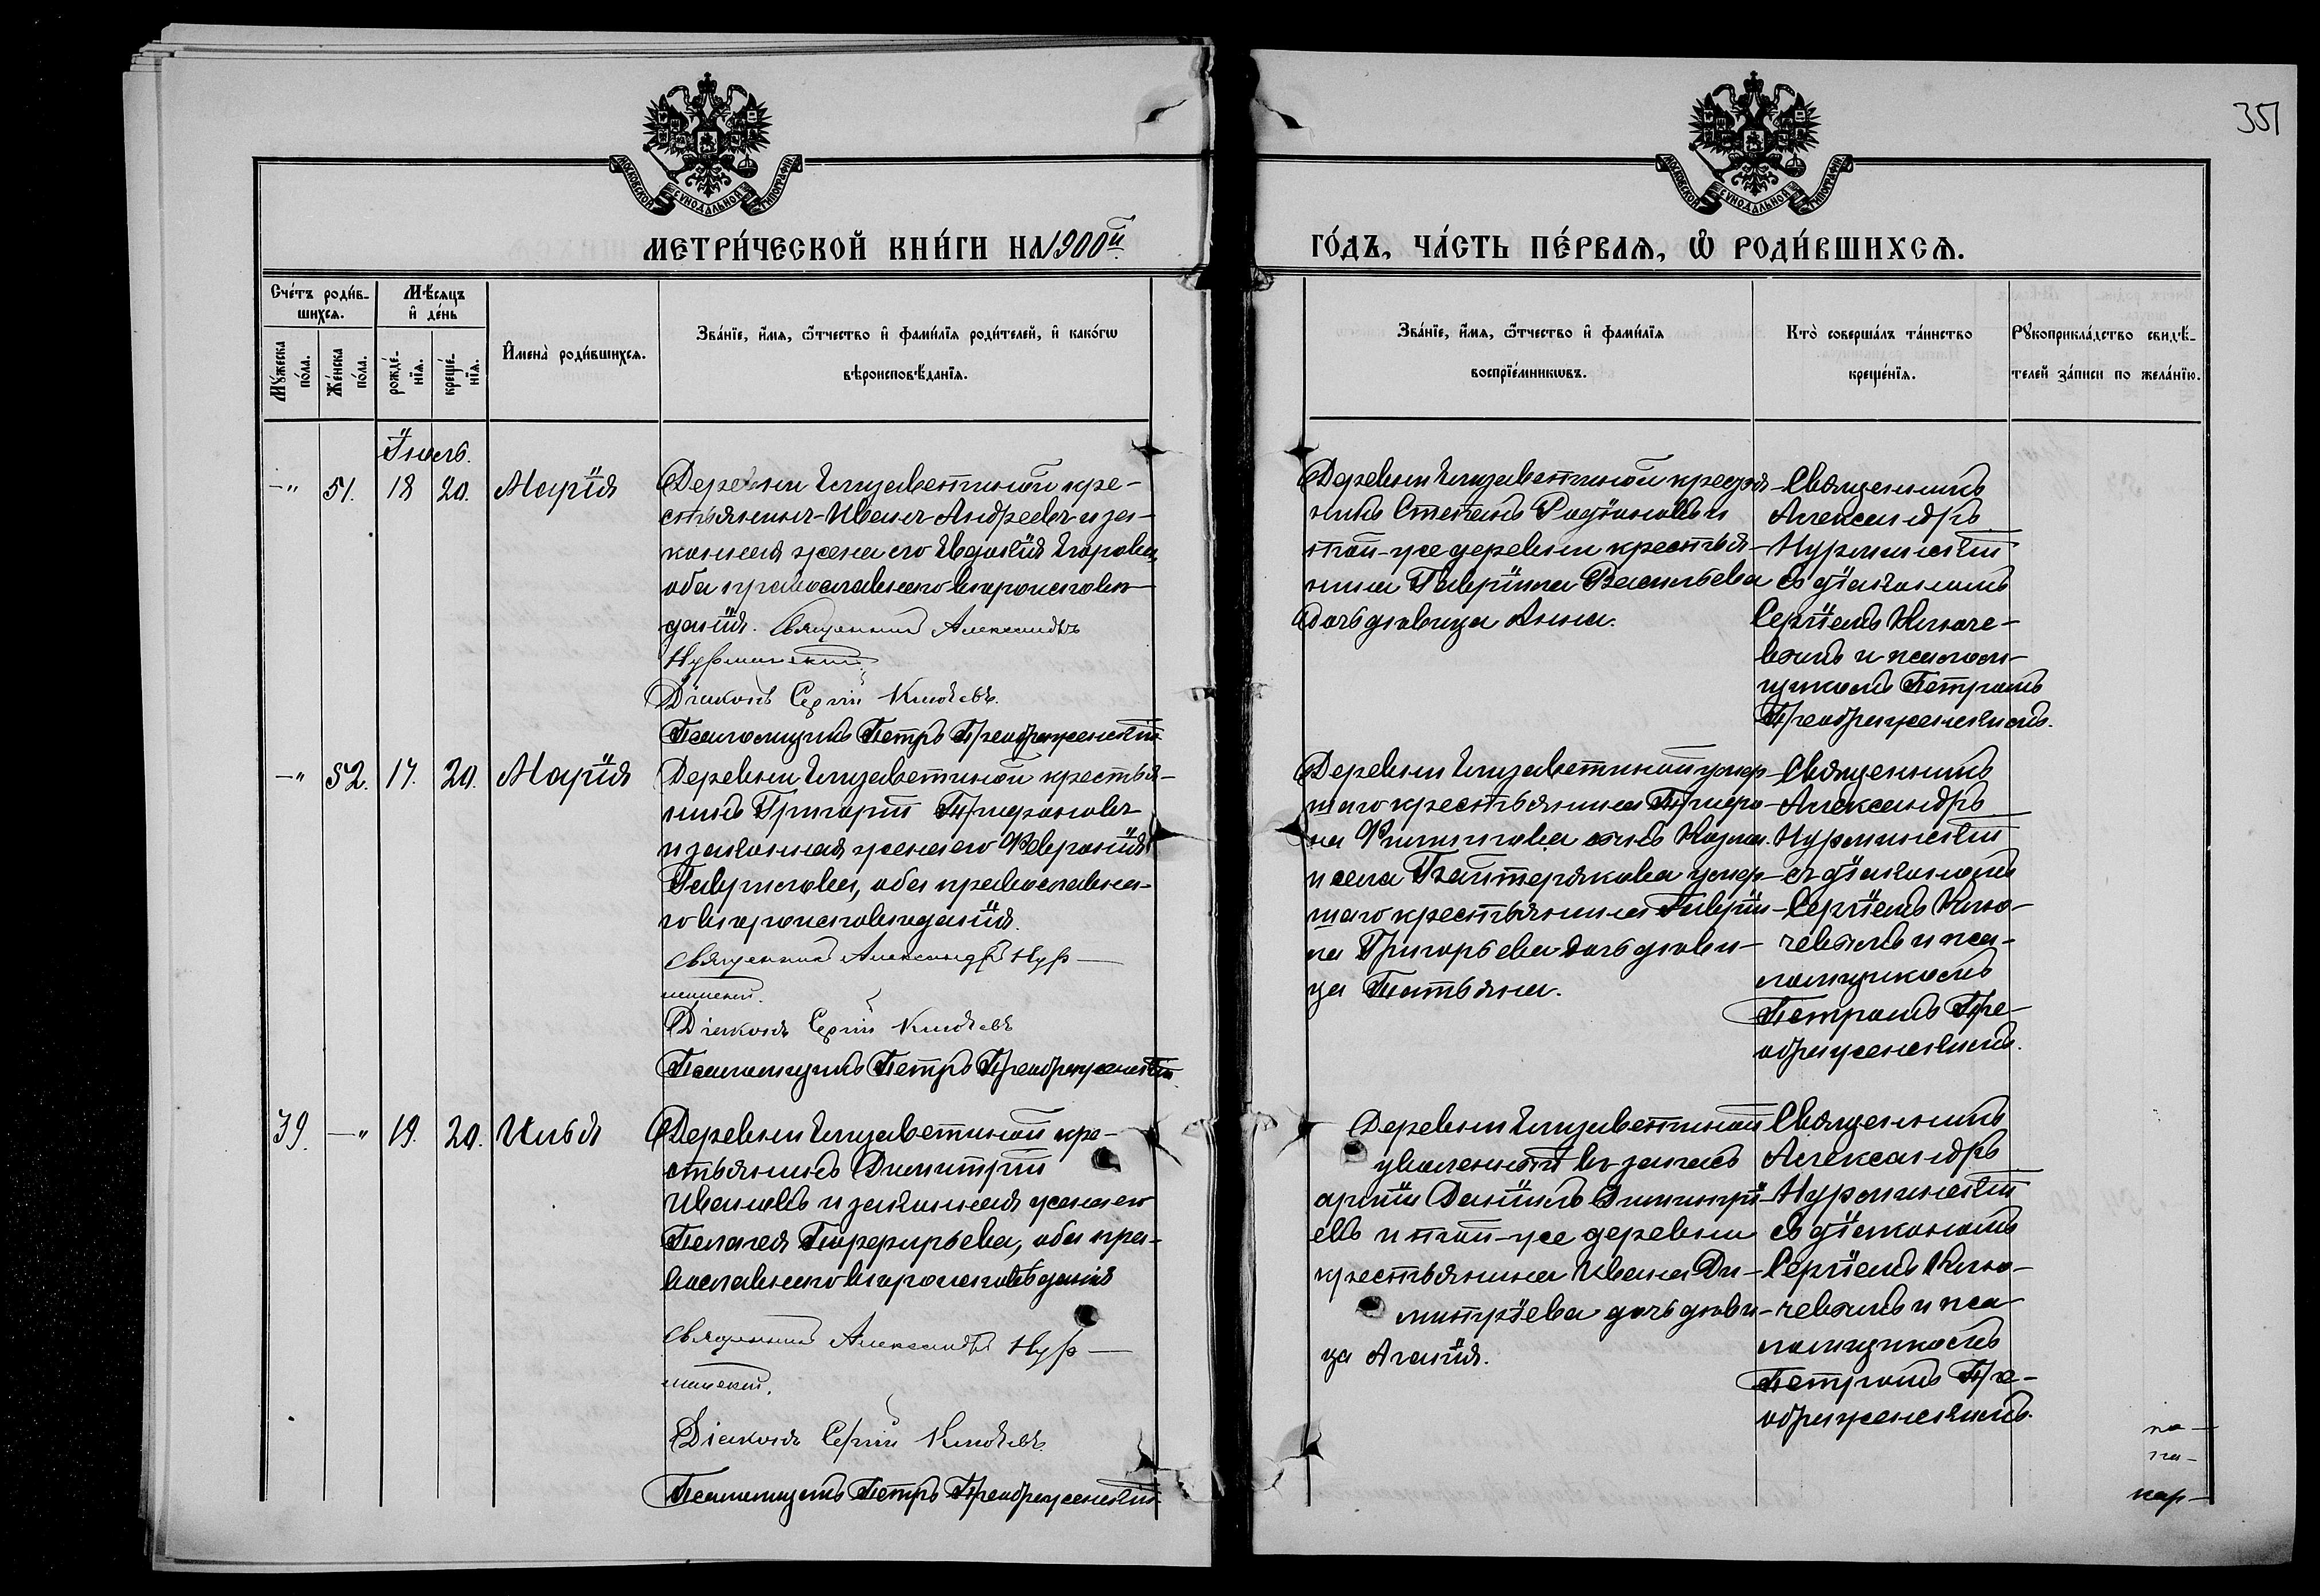 351
МОСКОВСКОЙ СѴНОДАЛЬНОЙ ТИПОГРАФІИ
МОСКОВСКОЙ СѴНОДАЛЬНОЙ ТИПОГРАФІИ
МЕТРИ́ЧЕСКОЙ КНИ́ГИ НА 1900й
ГО́ДЪ, ЧА́СТЬ ПЕ́РВАѦ, Ѡ҆ РОДИ́ВШИХСѦ.
Сче́тъ роди́в-
шихсѧ.
Му́жеска
по́ла.
Же́нска
по́ла.
Мѣ́сѧцъ
и҆ де́нь
рожде́-
нїѧ.
креще́-
нїѧ.
И҆мена̀ роди́вшихсѧ.
Зва́нїе, и҆́мѧ, ѻ҆́тчество и҆ фами́лїѧ роди́телей, и҆ како́гѡ
вѣроисповѣ́данїѧ.
Зва́нїе, и҆́мѧ, ѻ҆́тчество и҆ фами́лїѧ
воспрїе́мникѡвъ.
Кто̀ соверша́лъ та́инство
креще́нїѧ.
Рꙋкоприкла́дство свидѣ́-
телей за́писи по жела́нїю.
Іюль.
—" 51. 18 20. Марія
Деревни Елизаветиной кре-
стьянинъ Иванъ Андреевъ и за-
конная жена его Евдокія Егорова,
оба православнаго вѣроисповѣ-
данія. Священникъ Александръ
Нурминскій
Діаконъ Сергій Ключевъ.
Псаломщикъ Петръ Преображенскій
Деревни Елизаветиной крестья-
нинъ Степанъ Родіоновъ и
той-же деревни крестья-
нина Гавріила Васильева
дочь дѣвица Анна.
Священникъ
Александръ
Нурминскій
съ діакономъ
Сергіемъ Ключе-
вымъ и псалом-
щикомъ Петромъ
Преображенскимъ.
—" 52. 17. 20. Марія
Деревни Елизаветиной крестья-
нинъ Григорій Трифоновъ
и законная жена его Февронія
Гаврилова, оба православна-
го вѣроисповѣданія.
Священникъ Александръ Нур-
минскій.
Діаконъ Сергій Ключевъ
Псаломщикъ Петръ Преображенскій
Деревни Елизаветиной умер-
шаго крестьянина Трифо-
на Филиппова сынъ Козма
и села Байтерякова умер-
шаго крестьянина Гавріи-
ла Григорьева дочь дѣви-
ца Татьяна.
Священникъ
Александръ
Нурминскій
съ діакономъ
Сергіемъ Клю-
чевымъ и пса-
ломщикомъ
Петромъ Пре-
ображенскимъ.
39. —" 19. 20. Илья
Деревни Елизаветиной кре-
стьянинъ Димитрій
Ивановъ и законная жена его
Пелагея Порфирьева, оба пра-
вославнаго вѣроисповѣданія
Священникъ Александръ Нур-
минскій.
Діаконъ Сергій Ключевъ.
Псаломщикъ Петръ Преображенскій
Деревни Елизаветиной
уволенный въ запасъ
арміи Даніилъ Димитрі-
евъ и той-же деревни
крестьянина Ивана Ди-
митріева дочь дѣви-
ца Агапія.
Священникъ
Александръ
Нурминскій
съ діакономъ
Сергіемъ Клю-
чевымъ и пса-
ломщикомъ
Петромъ Пре-
ображенскимъ.